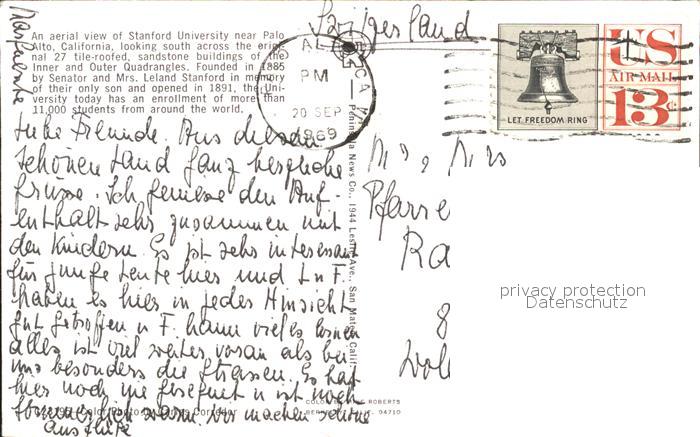 An aerial view of Stanford University near Palo
Alto, California, looking south across the origi-
nal 27 tile-roofed, sandstone buildings of the
Inner and Outer Quadrangles. Founded in 1885
by Senator and Mrs. Leland Stanford in memory
of their only son and opened in 1891, the Uni-
versity today has an enrollment of more than
11,000 students from around the world.
Liebe Freunde. Aus diesem
schönen Land ganz herzliche
Grüsse. Ich geniesse den Auf-
enthalt sehr zusammen mit
den Kindern. Es ist sehr interessant
für junge Leute hier und L u F.
haben es hier in jeder Hinsicht
gut getroffen u F. kann vieles lernen
alles ist viel weiter voran als bei
uns besonders die Strassen. Es hat
hier noch nie geregnet u ist noch
sommerlich warm. Wir machen schöne
Ausflüge
Peninsula News Co., 1944 Leslie Ave., San Mateo, Calif.
Color Photo by
COLOR BY MIKE ROBERTS
BERKELEY, CALIF. 94710
PM
20 SEP
1969
LET FREEDOM RING
US
AIR MAIL
13c
Mrs
Pfarre
Ra
8
privacy protection
Datenschutz